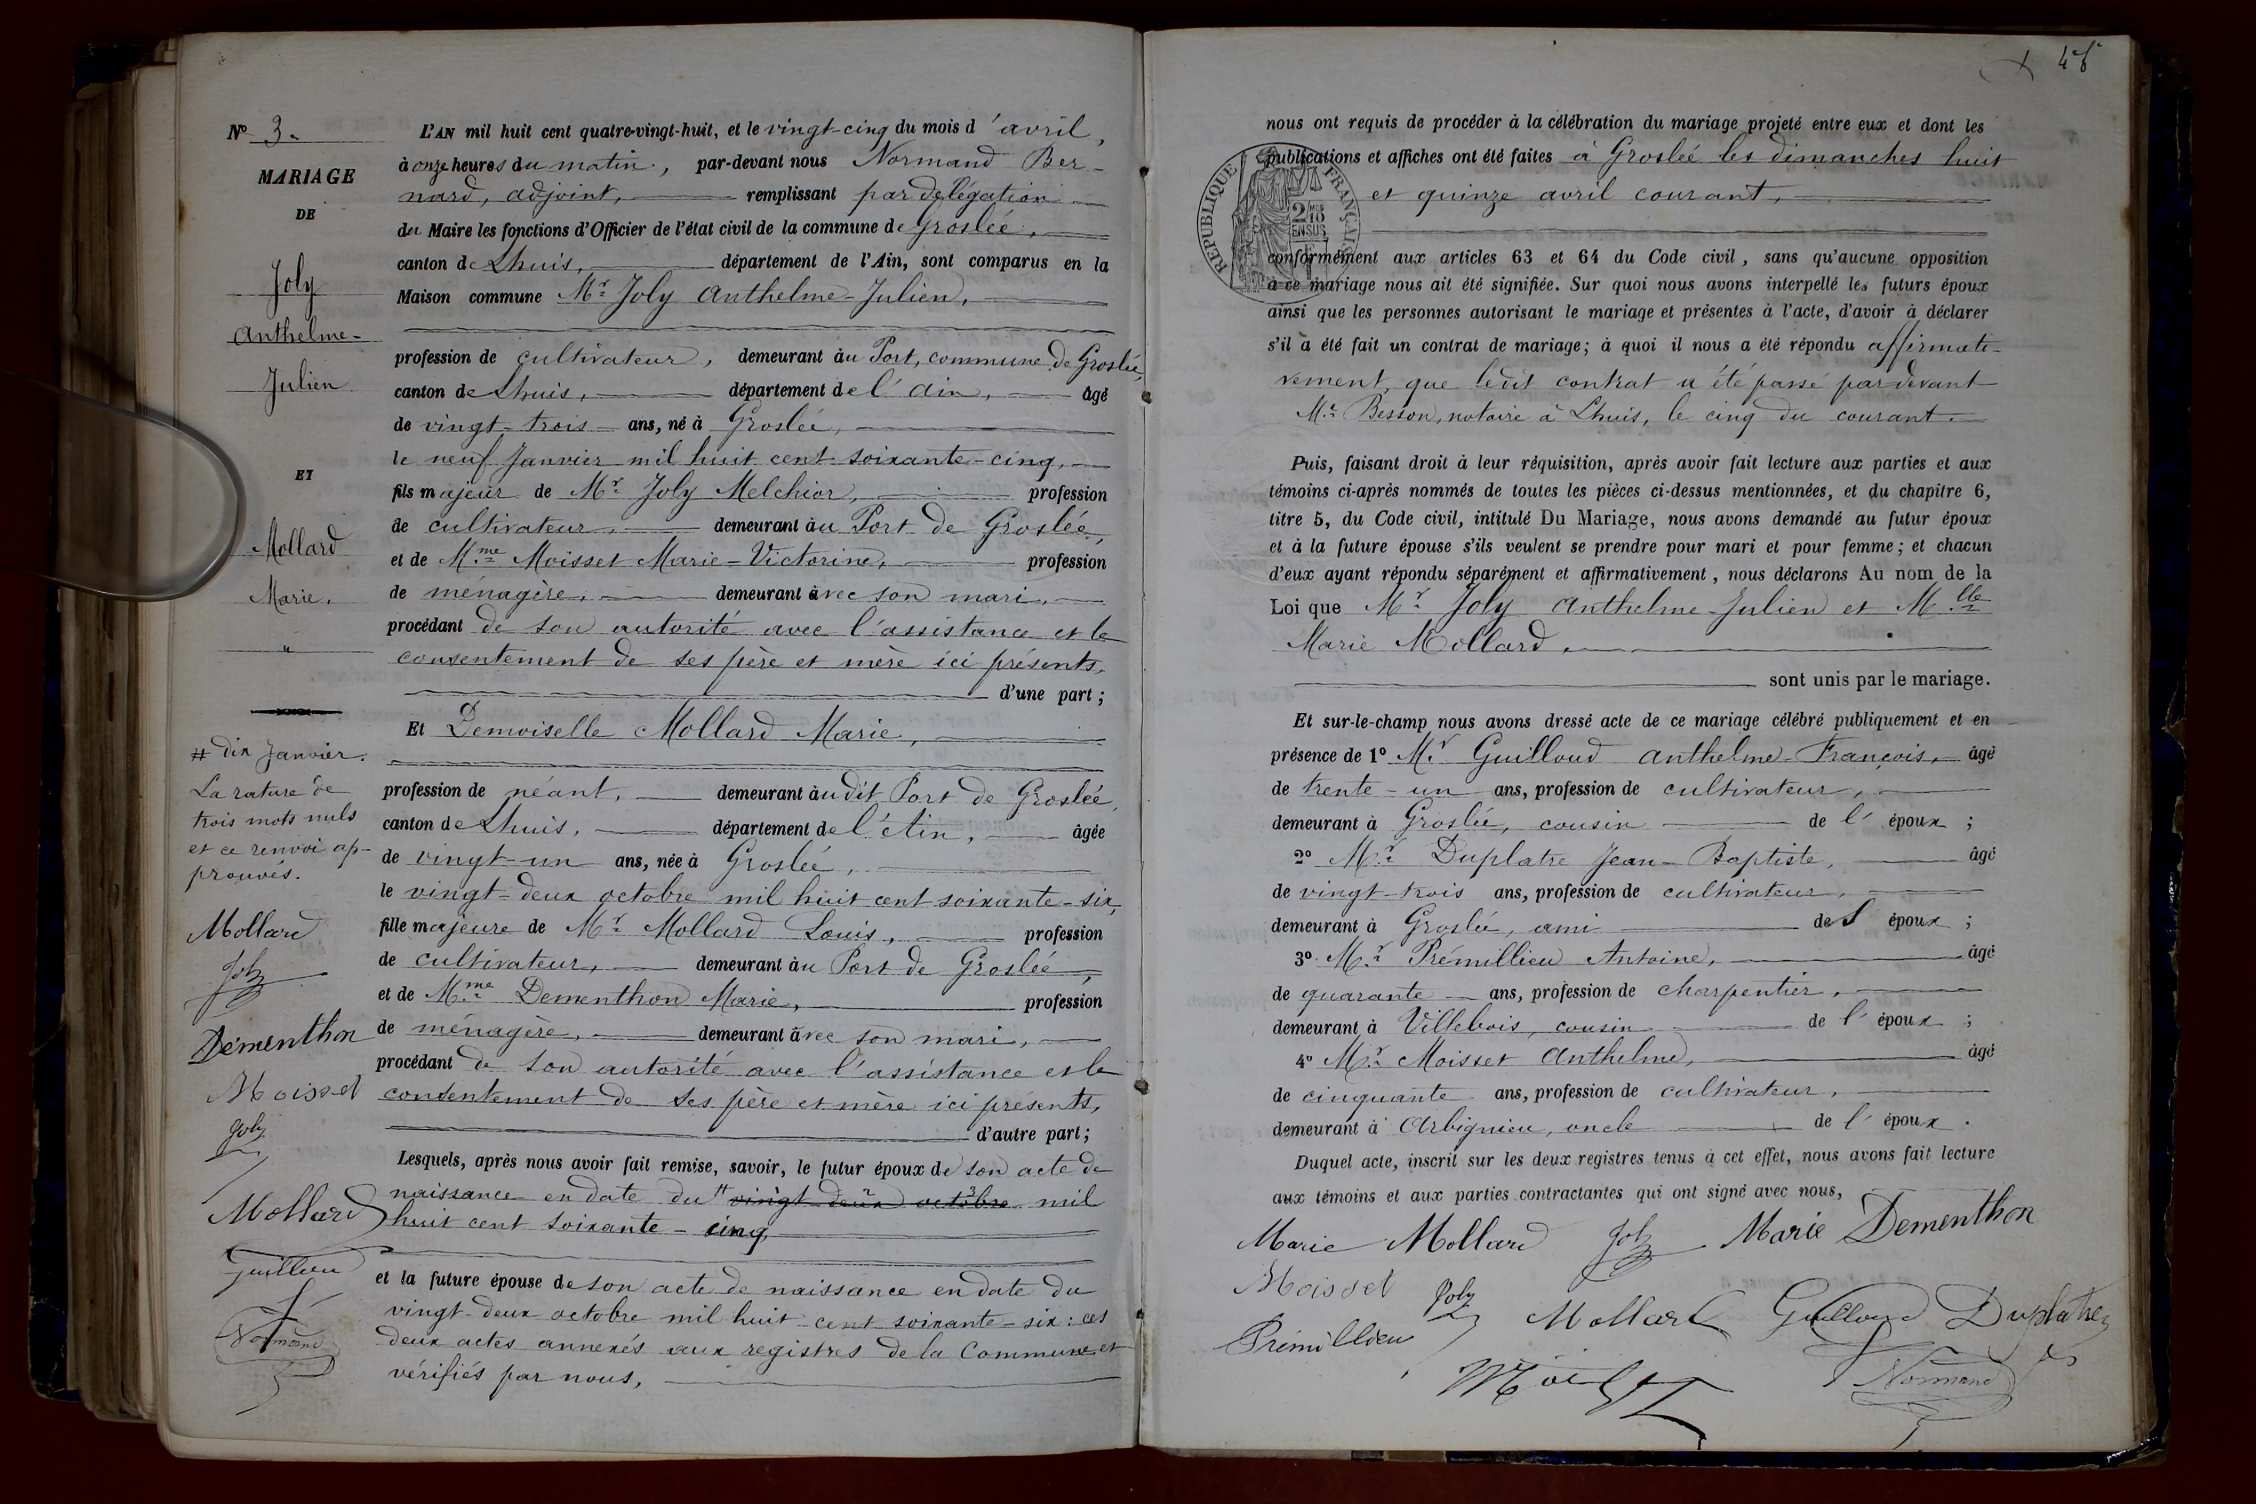 N° 3.
MARIAGE
DE
Joly
Anthelme-
Julien
ET
Mollard
Marie.
"
# dix Janvier.
La rature de
trois mots nuls
et ce renvoi ap-
prouvés.
Mollard
Joly
Dementhon
Moisset
Joly
Mollard
Guilloud
Normand
L'AN mil huit cent quatre-vingt-huit, et le vingt-cinq du mois d'avril,
à onze heures du matin, par-devant nous Normand Ber-
nard, adjoint, remplissant par délégation
du Maire les fonctions d'Officier de l'état civil de la commune de Groslée,
canton de Lhuis, département de l'Ain, sont comparus en la
Maison commune Mr. Joly Anthelme-Julien,
profession de cultivateur, demeurant au Port, commune de Groslée,
canton de Lhuis, département de l'Ain, âgé
de vingt-trois ans, né à Groslée,
le neuf Janvier mil huit cent soixante-cinq,
fils majeur de Mr. Joly Melchior, profession
de cultivateur, demeurant au Port de Groslée,
et de Mme Moisset Marie-Victorine, profession
de ménagère, demeurant avec son mari,
procédant de son autorité avec l'assistance et le
consentement de ses père et mère ici présents,
d'une part;
Et Demoiselle Mollard Marie,
profession de néant, demeurant audit Port de Groslée,
canton de Lhuis, département de l'Ain, âgée
de vingt-un ans, née à Groslée,
le vingt-deux octobre mil huit cent soixante-six,
fille majeure de Mr. Mollard Louis, profession
de cultivateur, demeurant au Port de Groslée,
et de Mme Dementhon Marie, profession
de ménagère, demeurant avec son mari,
procédant de son autorité avec l'assistance et le
consentement de ses père et mère ici présents,
d'autre part;
Lesquels, après nous avoir fait remise, savoir, le futur époux de son acte de
naissance en date du # vingt-deux octobre mil
huit cent soixante-cinq,
et la future épouse de son acte de naissance en date du
vingt-deux octobre mil huit cent soixante-six: ces
deux actes annexés aux registres de la Commune et
vérifiés par nous,
nous ont requis de procéder à la célébration du mariage projeté entre eux et dont les
publications et affiches ont été faites à Groslée les dimanches huit
et quinze avril courant,
RÉPUBLIQUE FRANÇAISE
conformément aux articles 63 et 64 du Code civil, sans qu'aucune opposition
à ce mariage nous ait été signifiée. Sur quoi nous avons interpellé les futurs époux
ainsi que les personnes autorisant le mariage et présentes à l'acte, d'avoir à déclarer
s'il a été fait un contrat de mariage; à quoi il nous a été répondu affirmati-
vement, que ledit contrat a été passé par devant
Me. Besson, notaire à Lhuis, le cinq du courant.
Puis, faisant droit à leur réquisition, après avoir fait lecture aux parties et aux
témoins ci-après nommés de toutes les pièces ci-dessus mentionnées, et du chapitre 6,
titre 5, du Code civil, intitulé Du Mariage, nous avons demandé au futur époux
et à la future épouse s'ils veulent se prendre pour mari et pour femme; et chacun
d'eux ayant répondu séparément et affirmativement, nous déclarons Au nom de la
Loi que Mr. Joly Anthelme-Julien et Mlle
Marie Mollard,
sont unis par le mariage.
Et sur-le-champ nous avons dressé acte de ce mariage célébré publiquement et en
présence de 1° Mr. Guilloud Anthelme-François, âgé
de trente-un ans, profession de cultivateur,
demeurant à Groslée, cousin de l'époux;
2° Mr. Duplatre Jean-Baptiste, âgé
de vingt-trois ans, profession de cultivateur,
demeurant à Groslée, ami de l'époux;
3° Mr. Prémillieu Antoine, âgé
de quarante ans, profession de charpentier,
demeurant à Villebois, cousin de l'époux;
4° Mr. Moisset Anthelme, âgé
de cinquante ans, profession de cultivateur,
demeurant à Arbignieu, oncle de l'époux.
Duquel acte, inscrit sur les deux registres tenus à cet effet, nous avons fait lecture
aux témoins et aux parties contractantes qui ont signé avec nous,
Marie Mollard Joly Marie Dementhon
Moisset Joly Mollard Guilloud Duplatre
Prémillieu Moisset Normand